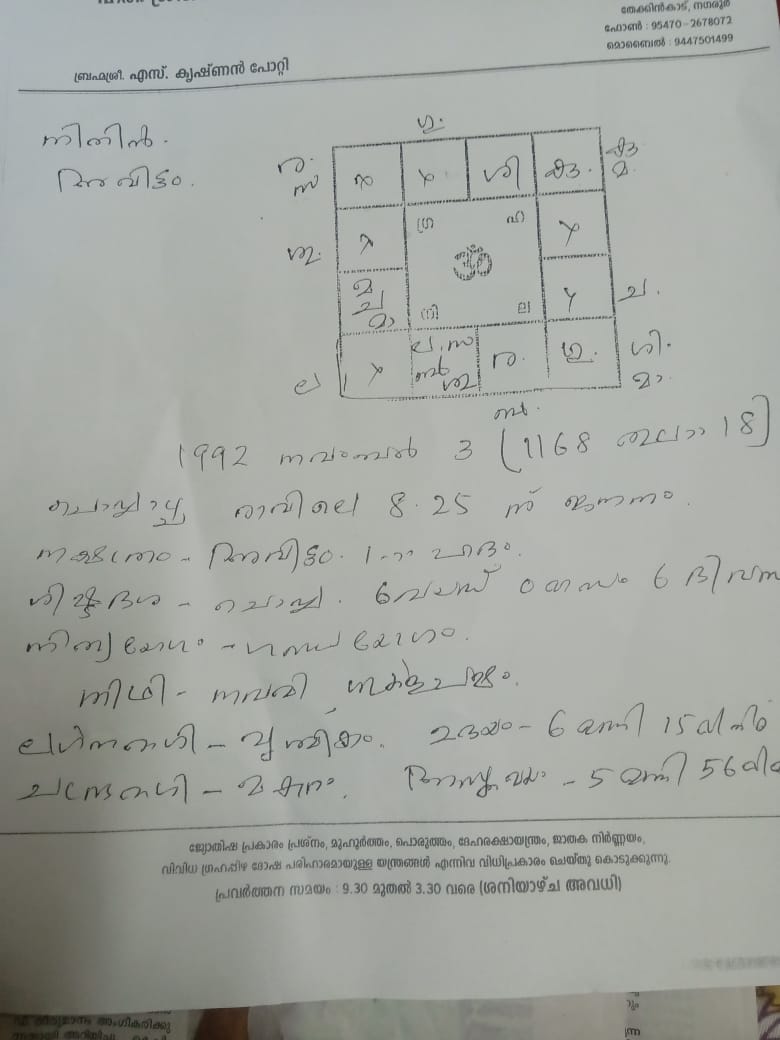 തേക്കിൻകാട്, നഗരൂർ
ഫോൺ : 95470-2678072
മൊബൈൽ : 9447501499
ബ്രഹ്മശ്രീ. എസ്. കൃഷ്ണൻ പോറ്റി
നിതിൻ.
അവിട്ടം.
ഗു.
ര.
സ
x x ശി കു.
കു
മ.
ശു.
x ഗ്ര ഹ x
ॐ
മ
ച
മാ
നി ല x ച.
ല x ല.സ
ബു
ശു
ര. ഗു. ശി.
മാ.
ബു.
1992 നവംബർ 3 (1168 തുലാം 18)
ചൊവ്വാഴ്ച രാവിലെ 8.25 ന് ജനനം.
നക്ഷത്രം - അവിട്ടം. 1-ാം പാദം.
ശിഷ്ടദശ - ചൊവ്വ. 6 വയസ് 0 മാസം 6 ദിവസ
നിത്യയോഗം - ഗണ്ഡയോഗം.
തിഥി - നവമി
ലഗ്നരാശി - വൃശ്ചികം. ഉദയം - 6 മണി 15 മിനിട്ട്
ചന്ദ്രരാശി - മകരം. അസ്തമയം - 5 മണി 56 മി
ജ്യോതിഷ പ്രകാരം പ്രശ്നം, മുഹൂർത്തം, പൊരുത്തം, ദേഹരക്ഷായന്ത്രം, ജാതക നിർണ്ണയം,
വിവിധ ഗ്രഹപ്പിഴ ദോഷ പരിഹാരമായുള്ള യന്ത്രങ്ങൾ എന്നിവ വിധിപ്രകാരം ചെയ്തു കൊടുക്കുന്നു.
പ്രവർത്തന സമയം : 9.30 മുതൽ 3.30 വരെ (ശനിയാഴ്ച അവധി)